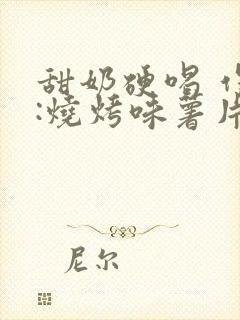 甜奶硬唱
:燒烤味薯片
尼尔